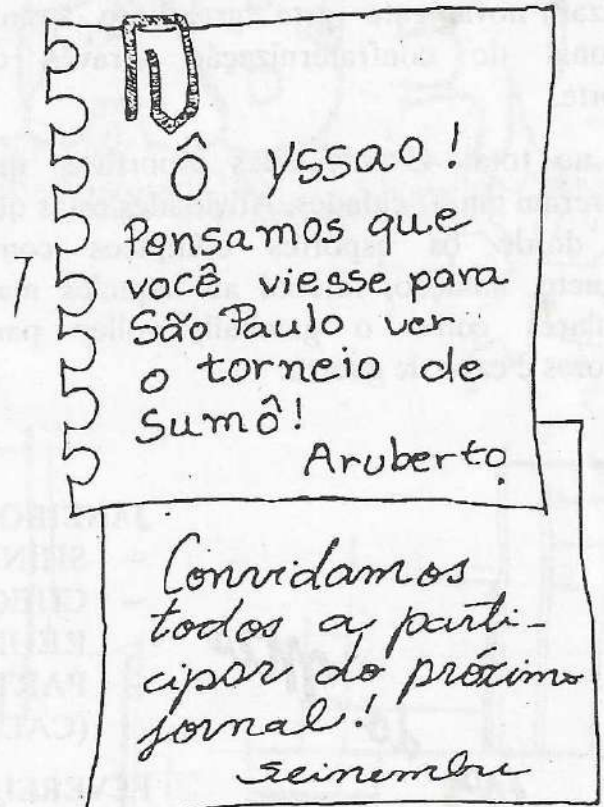 Ô Yssao!
Pensamos que
você viesse para
São Paulo ver
o torneio de
Sumô!
Aruberto
Convidamos
todos a parti-
cipar do próximo
jornal!
seinembu